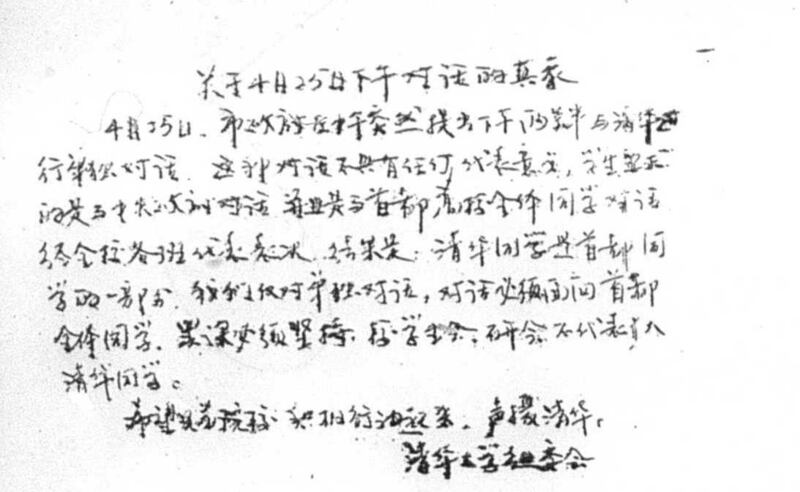 关于4月25日下午对话的真象
4月25日、市政府在中午突然提出下午两点半与清华进
行单独对话。这种对话不具有任何代表意义，学生要求
的是与中央政府对话 并且是与首都高校全体同学对话
经全校各班代表表决 结果是：清华同学是首都同
学的一部分 我们反对单独对话，对话必须面向首都
全体同学、罢课必须坚持 校学生会、研会不代表
清华同学。
希望兄弟院校 积极行动起来、声援清华。
清华大学 委会